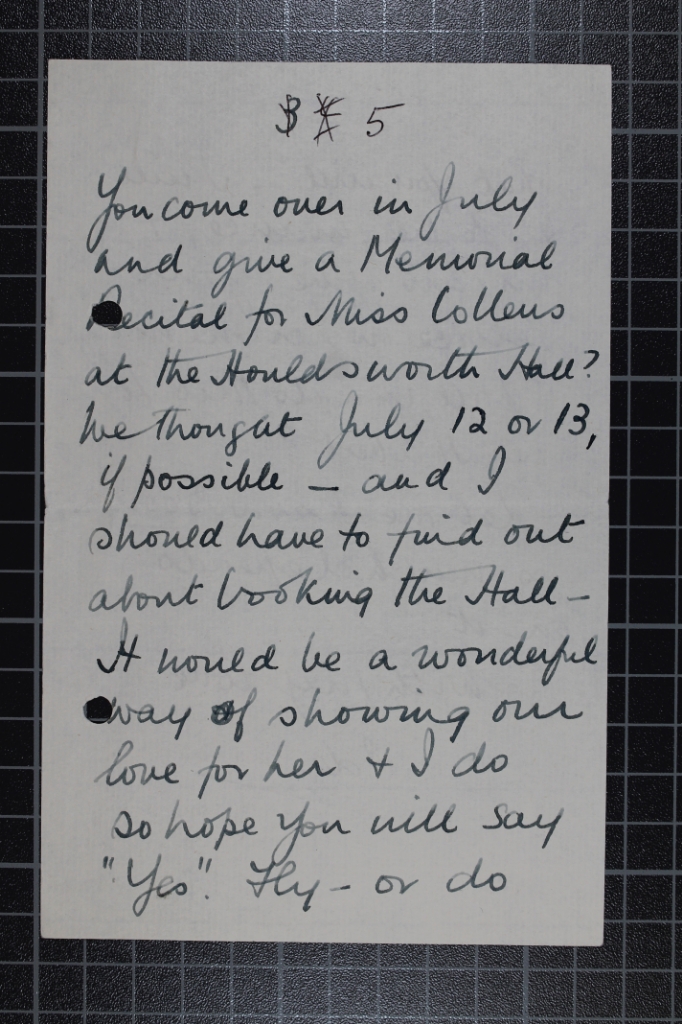 5
You come over in July
and give a Memorial
Recital for Miss Collens
at the Houldsworth Hall?
We thought July 12 or 13,
if possible – and I
should have to find out
about booking the Hall –
It would be a wonderful
way of showing our
love for her & I do
so hope you will say
"Yes". Fly – or do